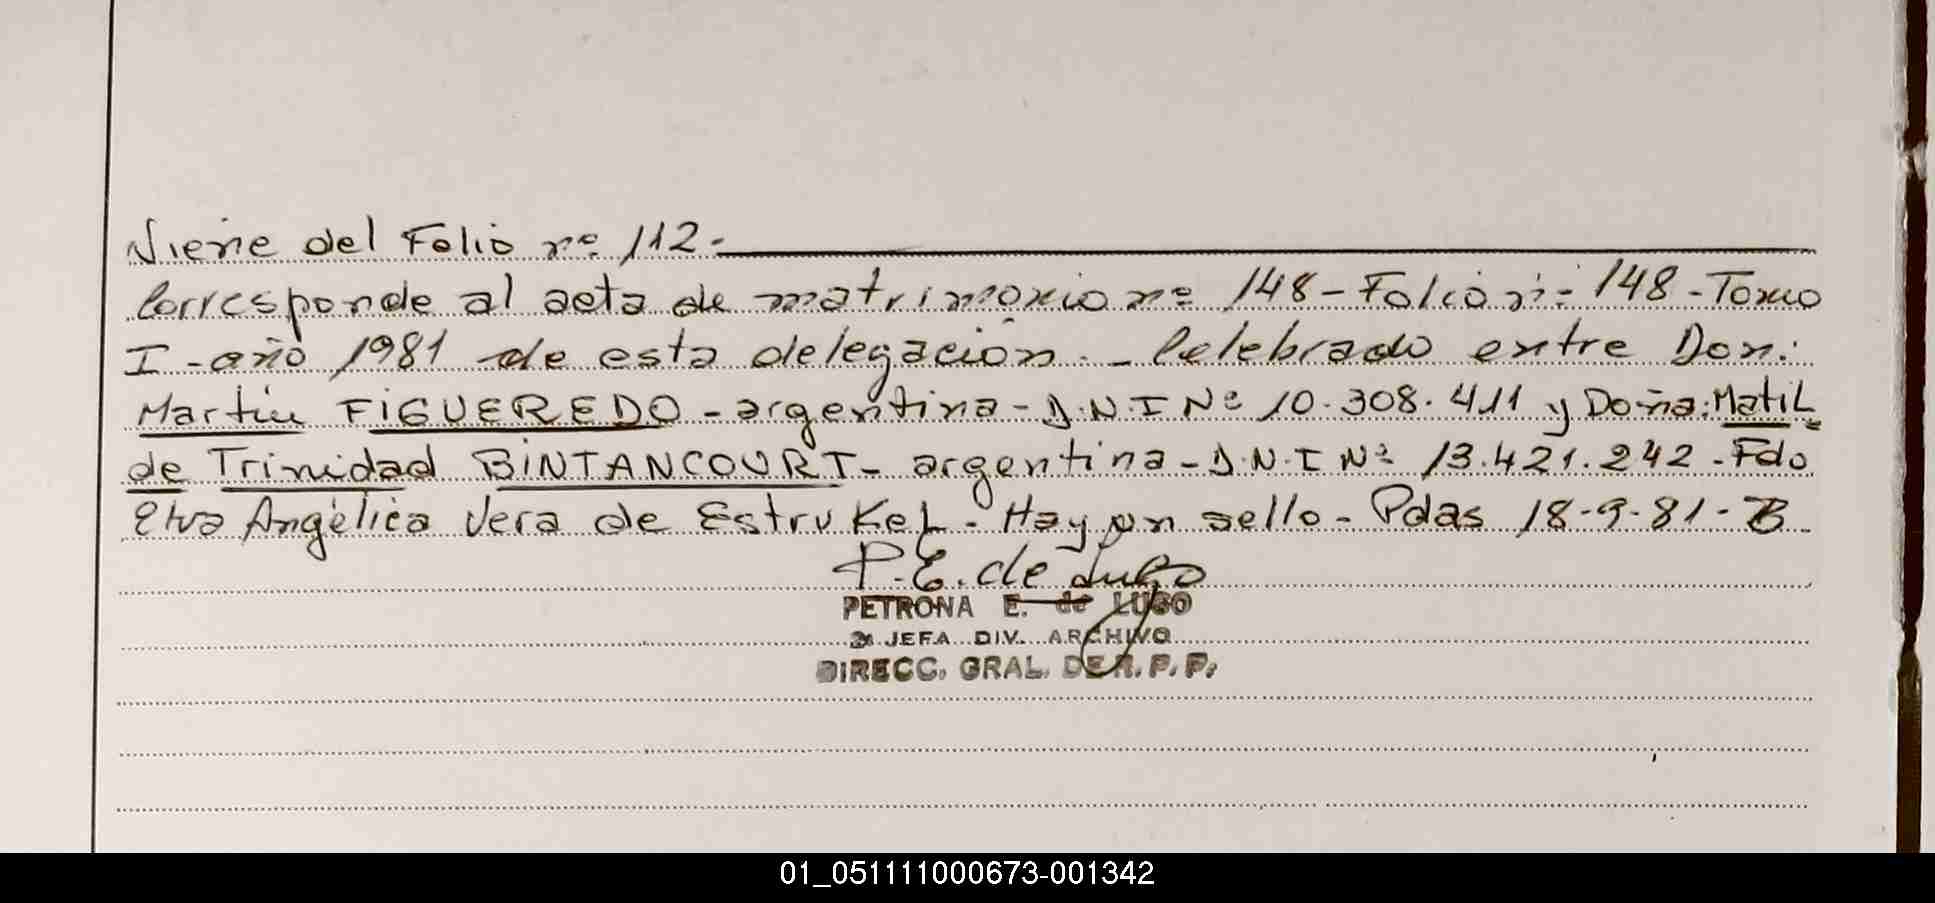 Viene del Folio nº 112-
Corresponde al acta de matrimonio nº 148 - Folio nº 148 - Tomo
I - año 1981 de esta delegación. - Celebrado entre Don:
Martin FIGUEREDO - argentina - D.N.I Nº 10.308.411 y Doña: Matil
de Trinidad BINTANCOURT - argentina - D.N.I Nº 13.421.242 - Fdo
Elva Angélica Vera de Estrukel - Hay un sello - Pdas 18-9-81 - B
P.E. de Lugo
PETRONA E. de LUGO
JEFA DIV. ARCHIVO
DIRECC. GRAL. DE R. P. P.
01_051111000673-001342